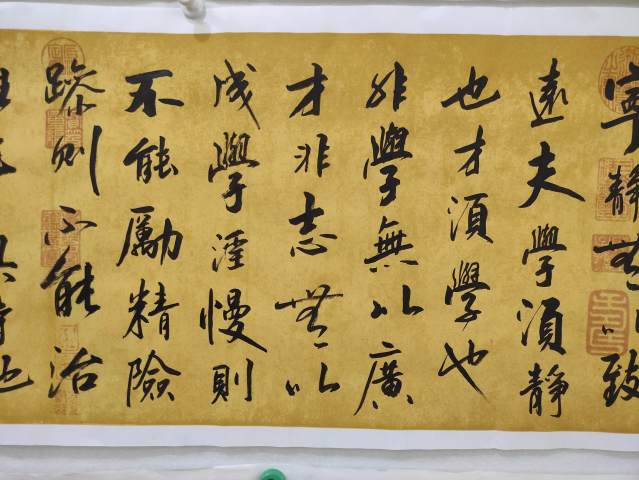 寧靜無以致
遠夫學須靜
也才須學也
非學無以廣
才非志無以
成學淫慢則
不能勵精險
躁則不能治